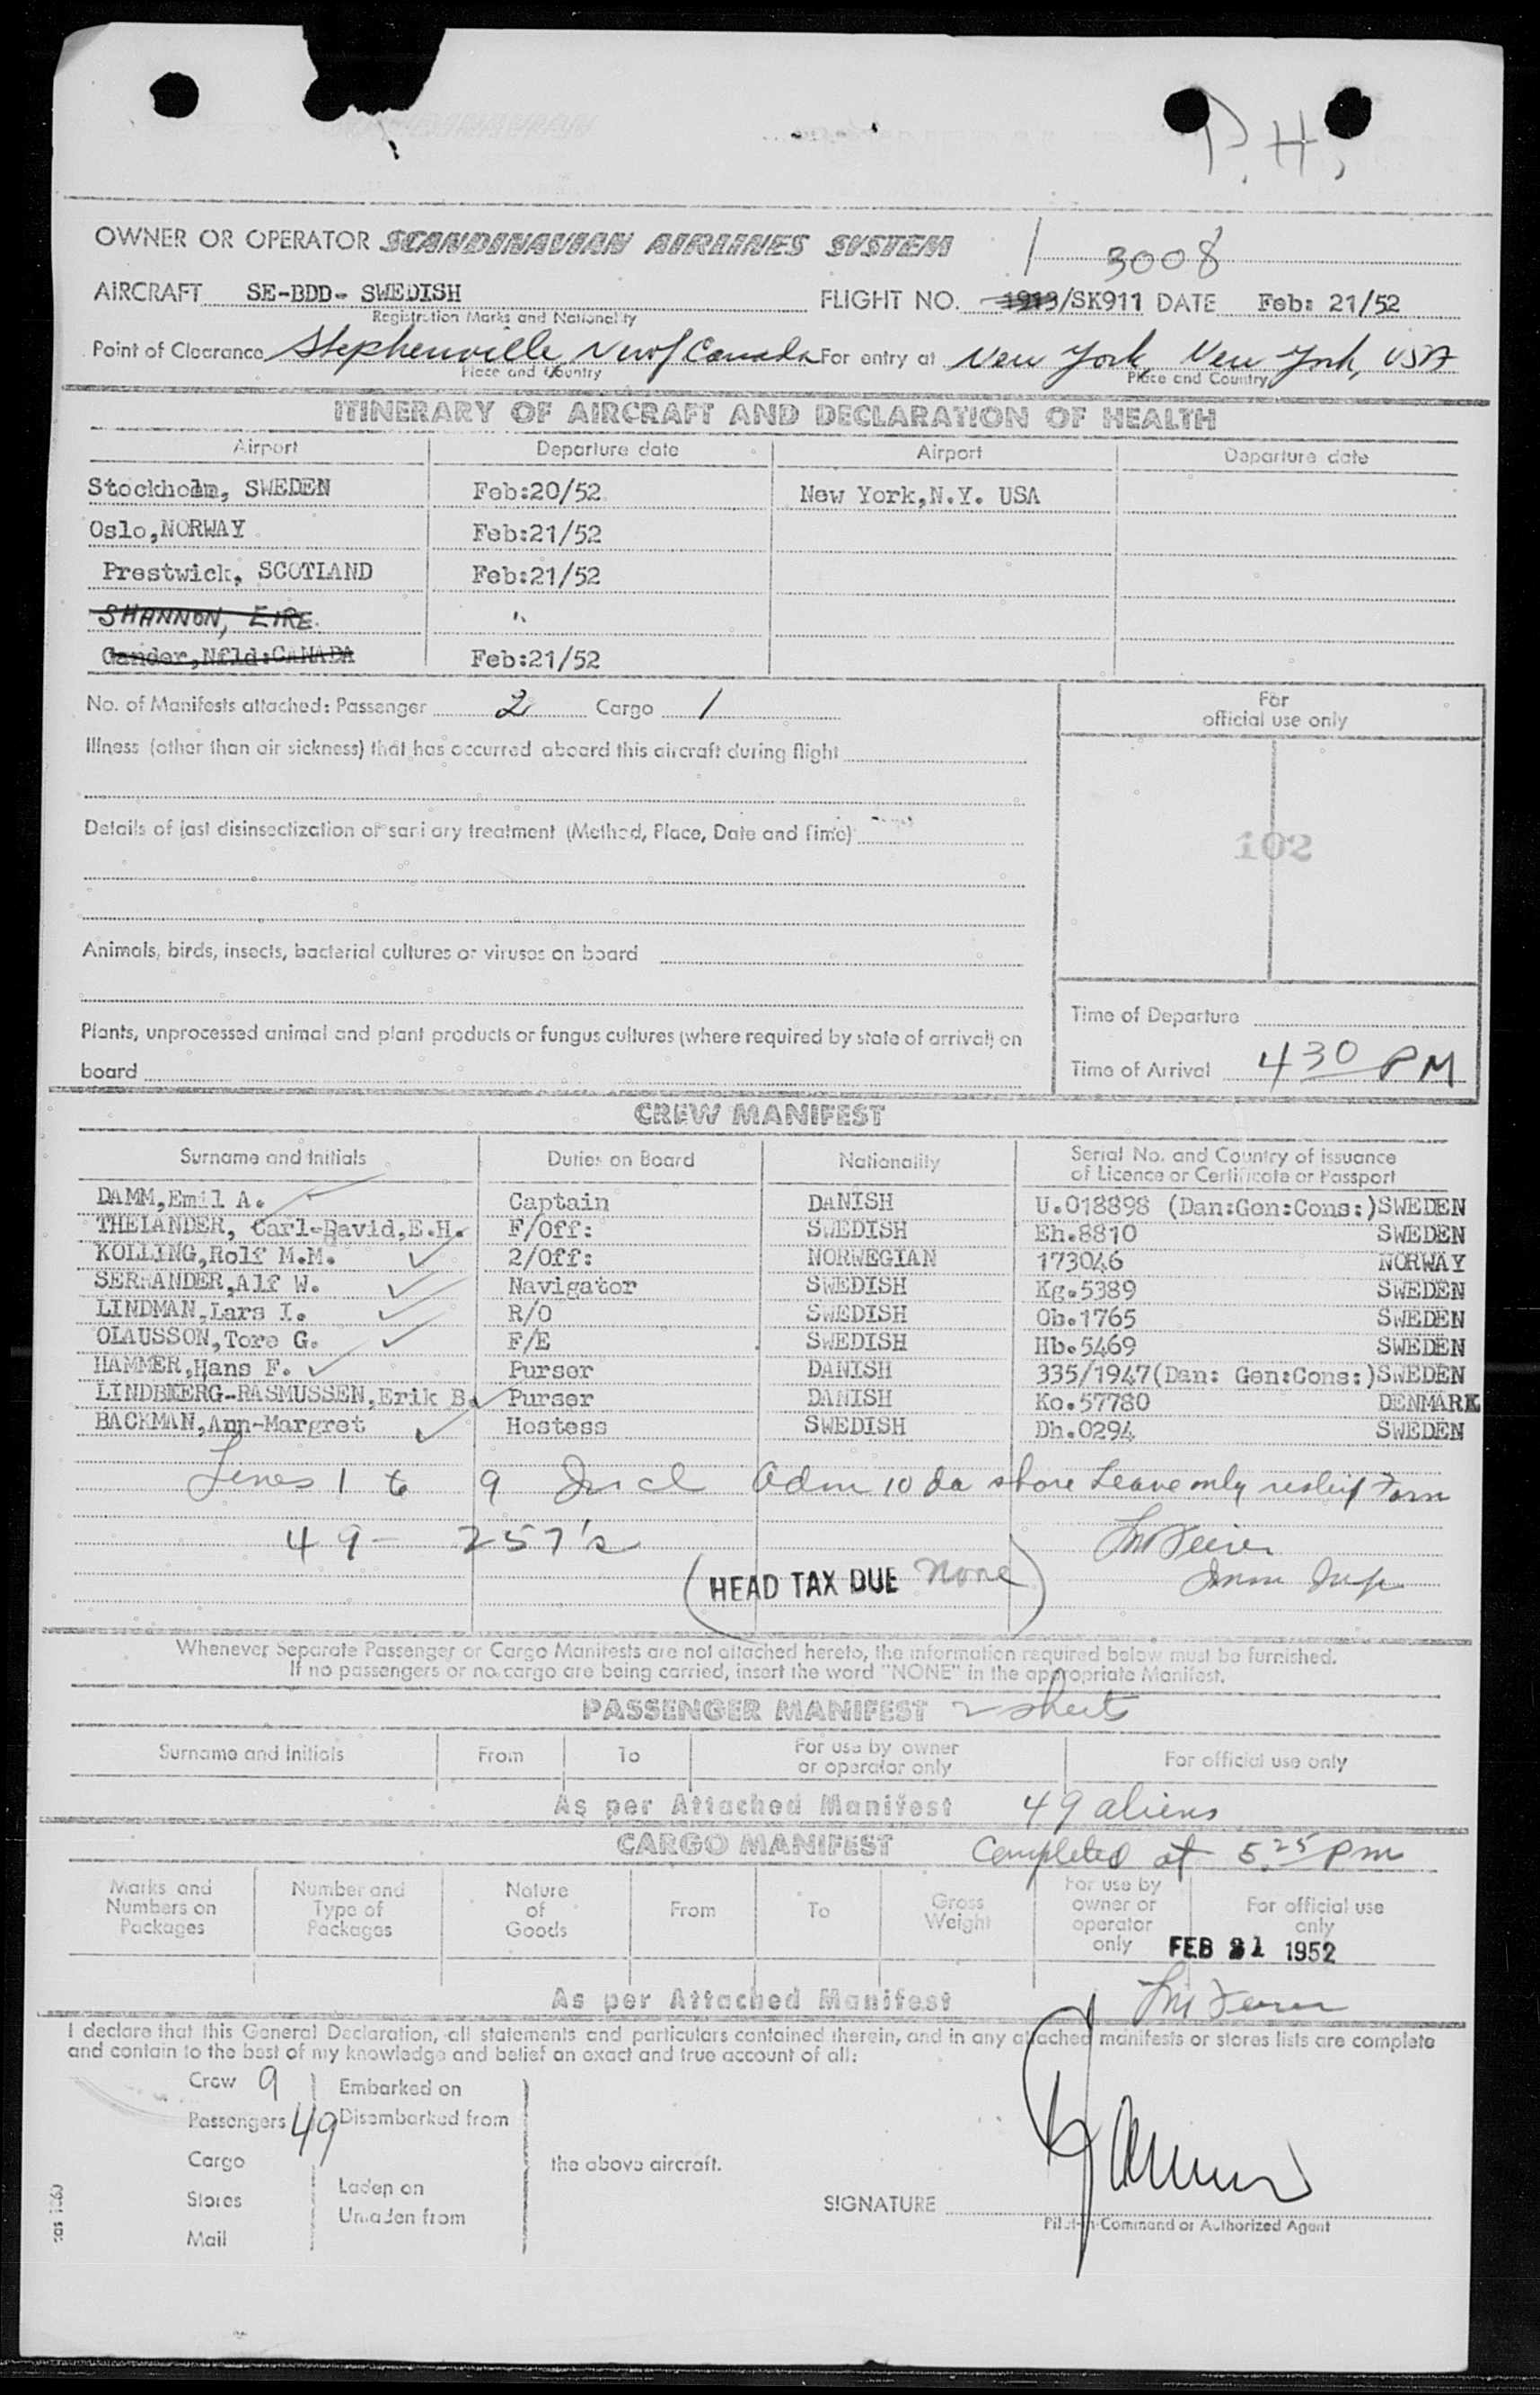 P. H.
OWNER OR OPERATOR SCANDINAVIAN AIRLINES SYSTEM 3008
AIRCRAFT SE-BDD- SWEDISH FLIGHT NO. 1913/SK911 DATE Feb: 21/52
Registration Marks and Nationality
Point of Clearance Stephenville Newf Canada For entry at New York, New York, USA
Place and Country Place and Country
ITINERARY OF AIRCRAFT AND DECLARATION OF HEALTH
Airport Departure date Airport Departure date
Stockholm, SWEDEN Feb:20/52 New York,N.Y. USA
Oslo,NORWAY Feb:21/52
Prestwick, SCOTLAND Feb:21/52
SHANNON, EIRE "
Gander,Nfld:CANADA Feb:21/52
No. of Manifests attached: Passenger 2 Cargo 1
For
official use only
Illness (other than air sickness) that has occurred aboard this aircraft during flight
Details of last disinsectization or sanitary treatment (Method, Place, Date and Time)
102
Animals, birds, insects, bacterial cultures or viruses on board
Time of Departure
Plants, unprocessed animal and plant products or fungus cultures (where required by state of arrival) on
board
Time of Arrival 430 PM
CREW MANIFEST
Surname and Initials Duties on Board Nationality Serial No. and Country of issuance
of Licence or Certificate or Passport
DAMM,Emil A. Captain DANISH U.018898 (Dan:Gen:Cons:)SWEDEN
THELANDER, Carl-David,E.H. F/Off: SWEDISH Eh.8810 SWEDEN
KOLLING,Rolf M.M. 2/Off: NORWEGIAN 173046 NORWAY
SERNANDER,Alf W. Navigator SWEDISH Kg.5389 SWEDEN
LINDMAN,Lars I. R/O SWEDISH Ob.1765 SWEDEN
OLAUSSON,Tore G. F/E SWEDISH Hb.5469 SWEDEN
HAMMER,Hans F. Purser DANISH 335/1947(Dan: Gen:Cons:)SWEDEN
LINDBERG-RASMUSSEN,Erik B. Purser DANISH Ko.57780 DENMARK
BACKMAN,Ann-Margret Hostess SWEDISH Dh.0294 SWEDEN
Lines 1 to 9 Incl Adm 10 da shore Leave only
49- 257's
Imm Insp
(HEAD TAX DUE None)
Whenever Separate Passenger or Cargo Manifests are not attached hereto, the information required below must be furnished.
If no passengers or no cargo are being carried, insert the word "NONE" in the appropriate Manifest.
PASSENGER MANIFEST 2 sheets
Surname and Initials From To For use by owner
or operator only For official use only
As per Attached Manifest 49 aliens
CARGO MANIFEST Completed at 5.25 pm
Marks and
Numbers on
Packages Number and
Type of
Packages Nature
of
Goods From To Gross
Weight For use by
owner or
operator
only For official use
only
FEB 21 1952
As per Attached Manifest
I declare that this General Declaration, all statements and particulars contained therein, and in any attached manifests or stores lists are complete
and contain to the best of my knowledge and belief an exact and true account of all:
Crew 9 Embarked on
Passengers 49 Disembarked from
Cargo the above aircraft.
Stores Laden on
Unladen from
Mail
SIGNATURE
Pilot-in-Command or Authorized Agent